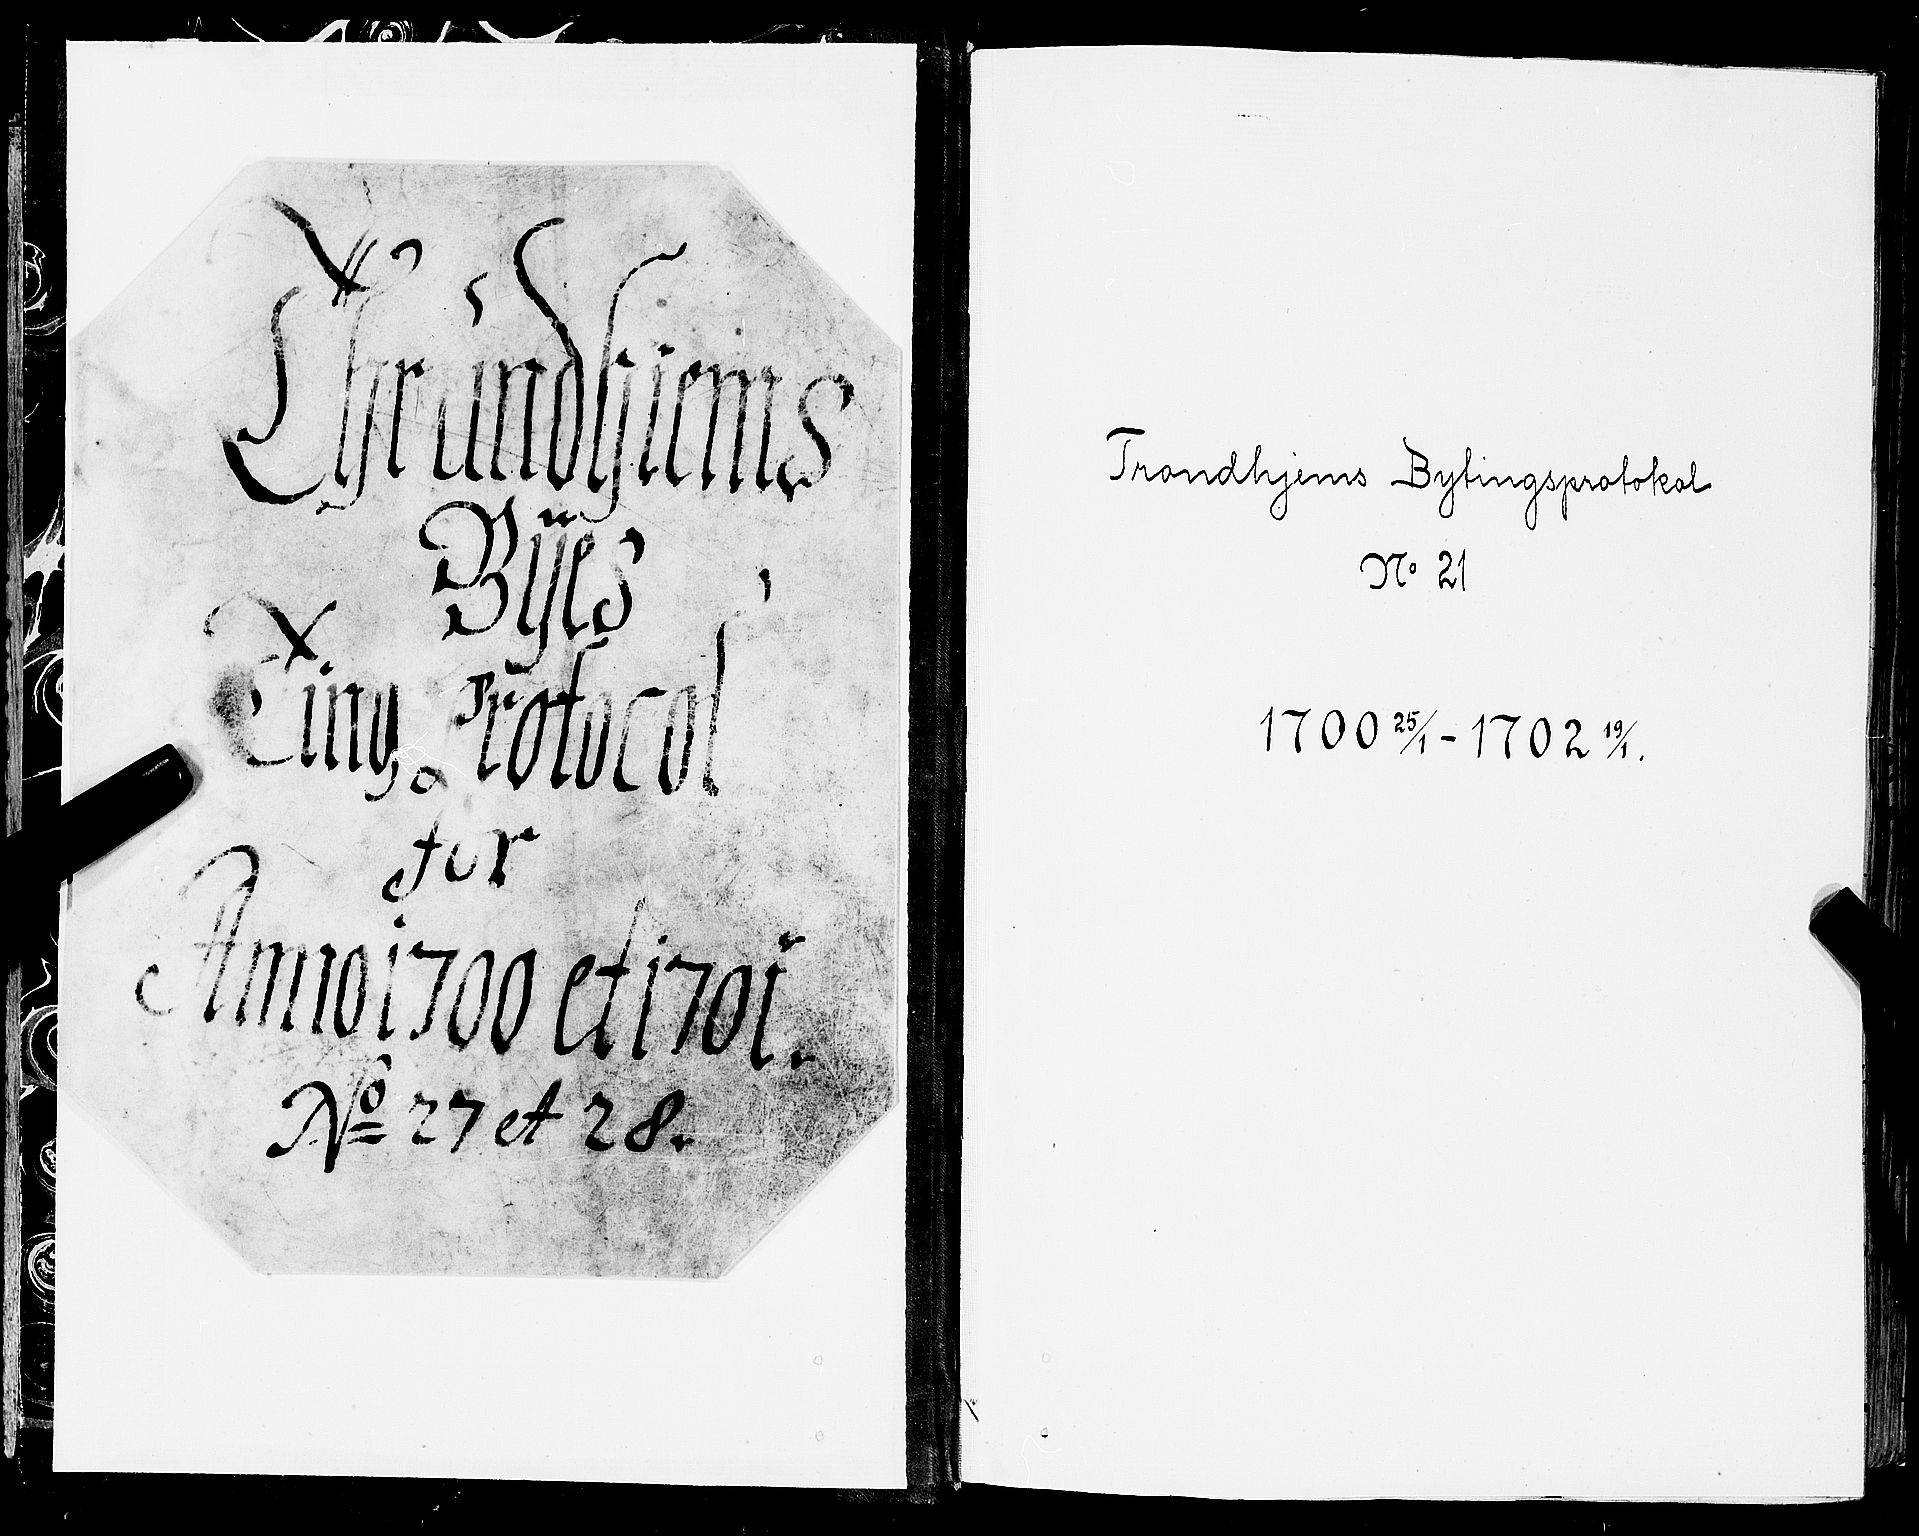 Thrundhiems
Bÿes
Ting Protocol
for
Anno 1700 et 1701.
No 27 et 28.
Trondhjems Bytingsprotokol
No 21
1700 25/1 - 1702 19/1.